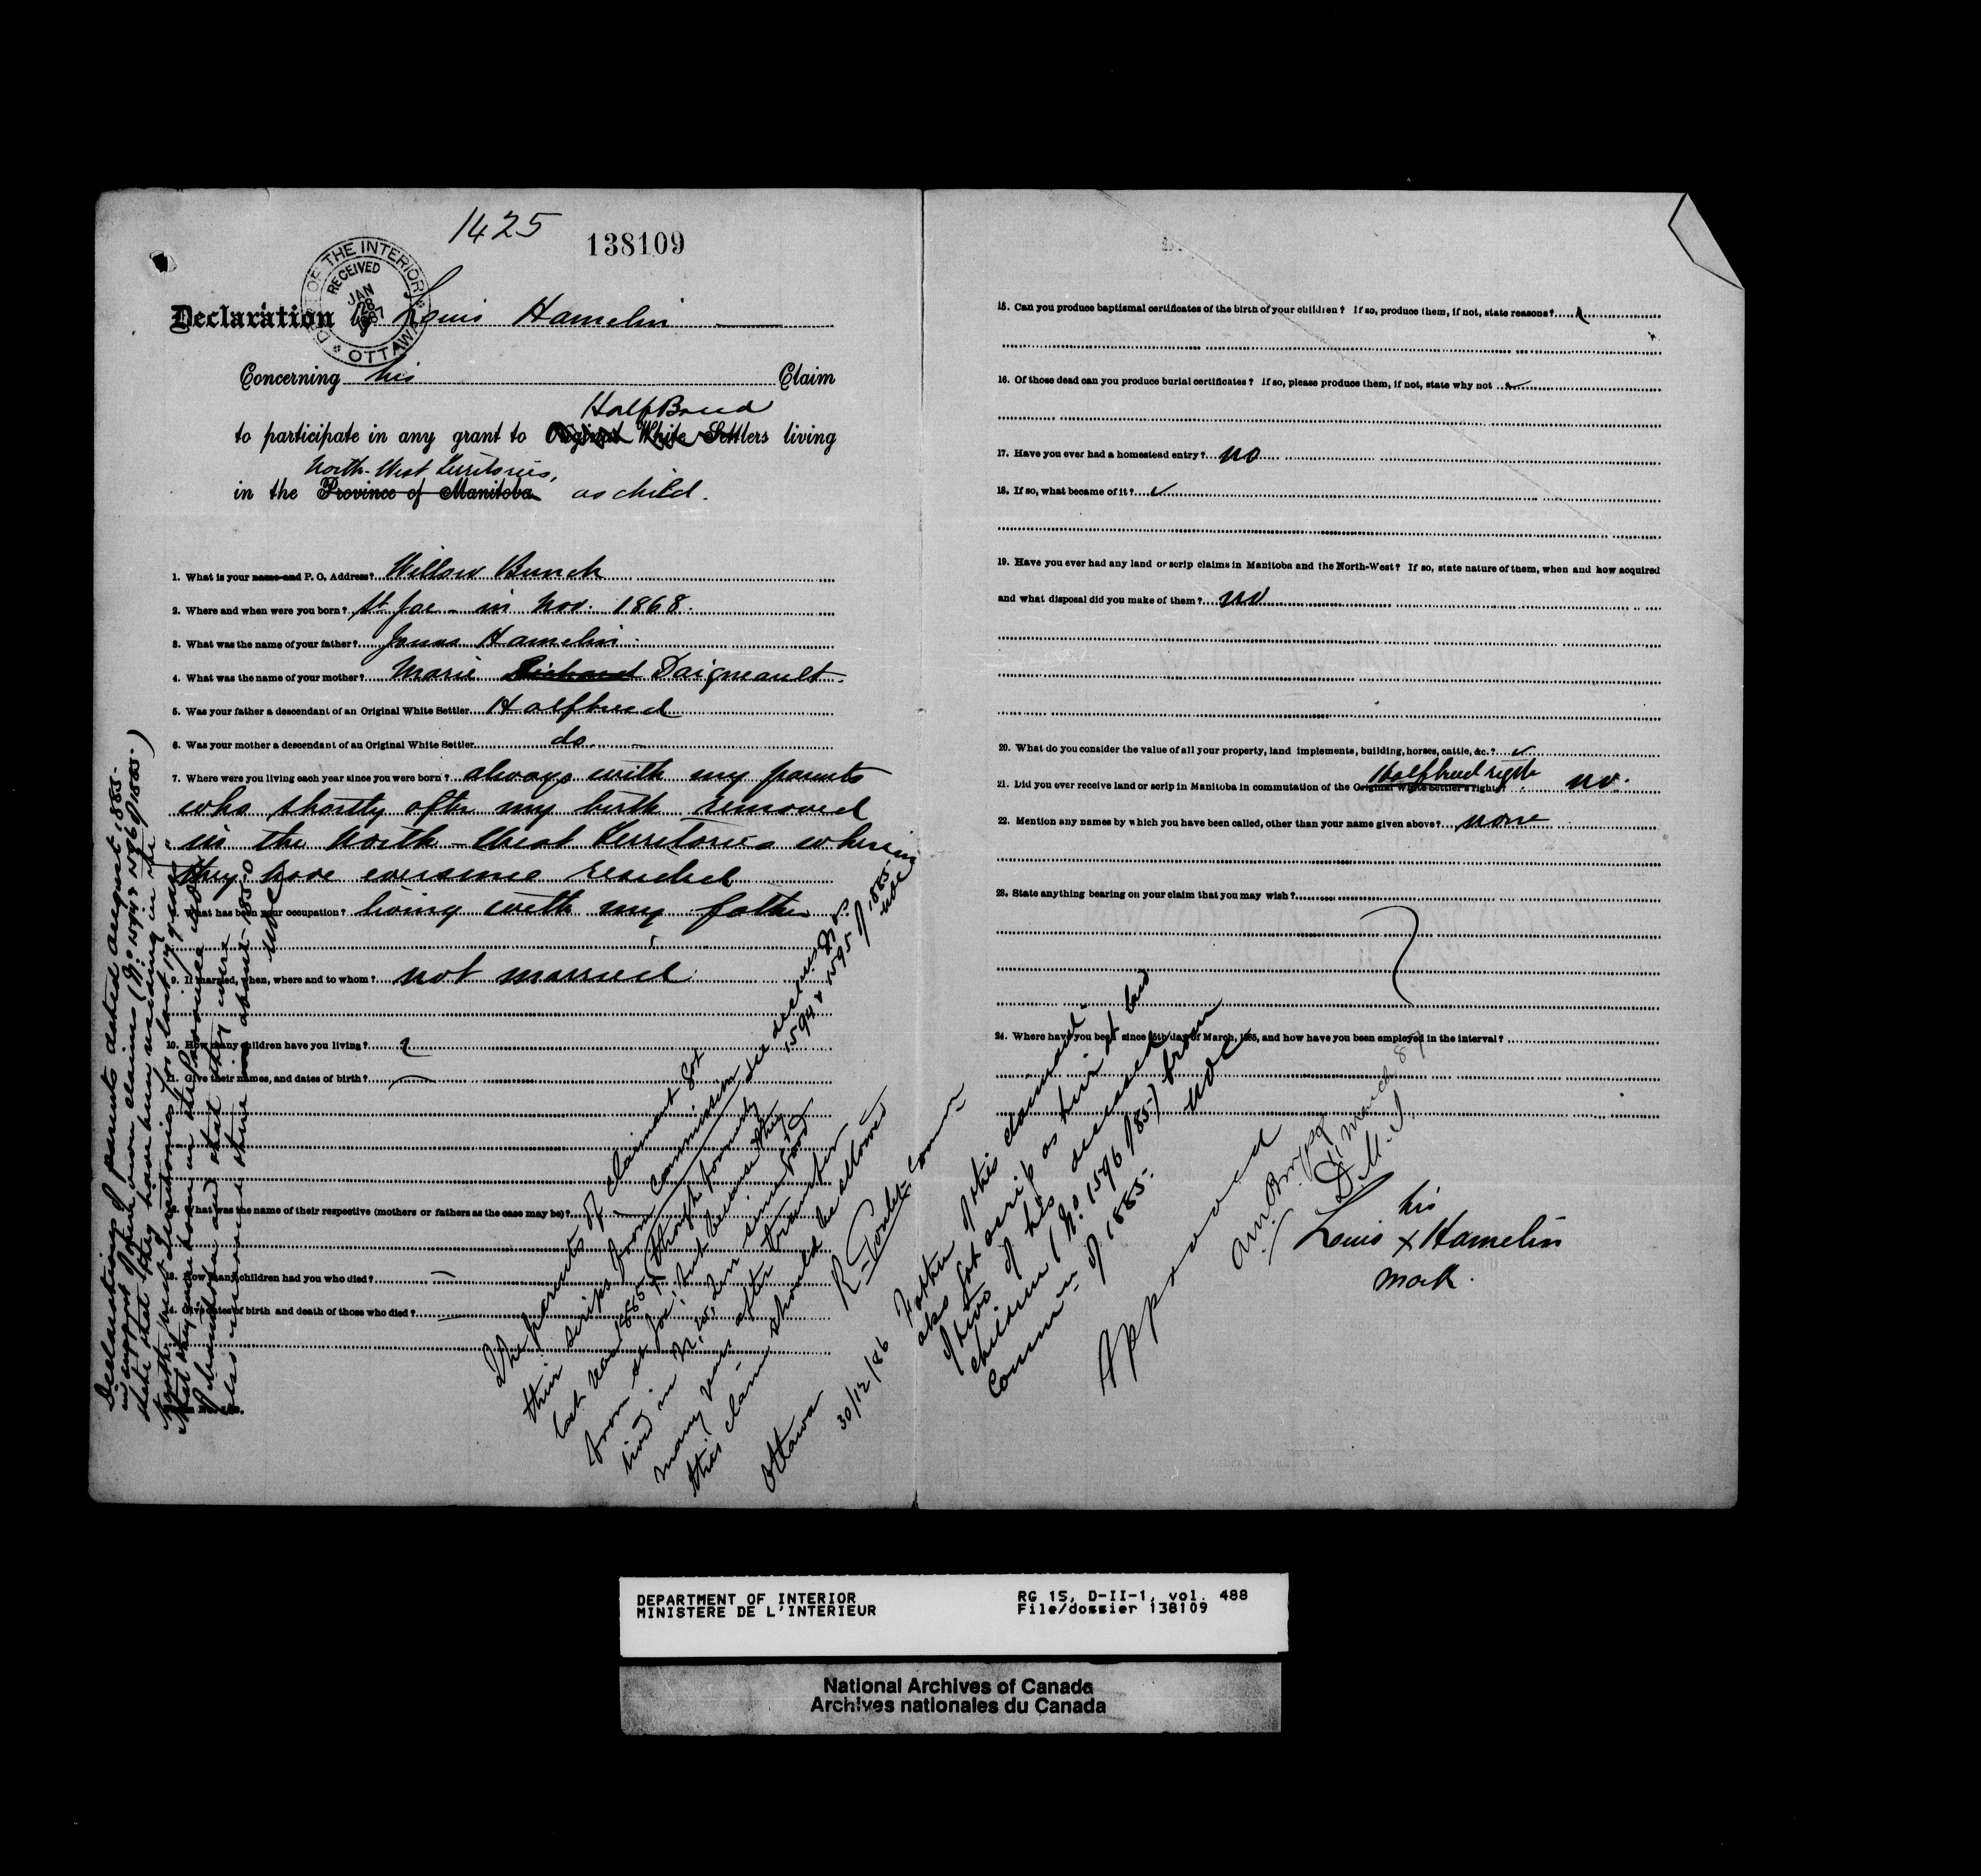 1425
138109
DEPT OF THE INTERIOR
RECEIVED
JAN
28
1887
OTTAWA
Declaration of Louis Hamelin
Concerning his Claim
HalfBreed
to participate in any grant to Original White Settlers living
North-West Territories,
in the Province of Manitoba as child.
1. What is your name and P. O. Address? Willow Bunch
2. Where and when were you born? St Joe - in Nov. 1868.
3. What was the name of your father? Jonas Hamelin
4. What was the name of your mother? Marie Daigneault
5. Was your father a descendant of an Original White Settler Halfbreed
6. Was your mother a descendant of an Original White Settler do
7. Where were you living each year since you were born? always with my parents
who shortly after my birth removed
in the North-West Territories wherein
they have eversince resided
8. What has been your occupation? living with my father
9. If married, when, where and to whom? not married
10. How many children have you living?
11. Give their names, and dates of birth?
12. What was the name of their respective (mothers or fathers as the case may be)?
13. How many children had you who died? —
14. Give dates of birth and death of those who died? —
Declarations of parents dated august 1885-
in support of their own claims (Nos 1594 & 1596 of 1885-)
state that they have been residing in the
North West Territories for last 17 years"
that they were born in the Province
of Manitoba and that they were
also married there in about 1850
NOC
The parents of claimant got
their scrips from Commission
last year 1885 (though formerly
from St Joe) but because they
lived in N.W. Ter since 1870
many years after transfer
this claim should be allowed
see declarations Nos
1594 & 1595 of 1885-
NOC
R Goulet
Comm
Ottawa 30/12/86
Father of this claimant
also got scrip as heir at law
of two of his deceased
children (No 1596 of 85-) from
Commn of 1885-
NOC
Approved
D.M.I.
15. Can you produce baptismal certificates of the birth of your children? If so, produce them, if not, state reasons?
16. Of those dead can you produce burial certificates? If so, please produce them, if not, state why not
17. Have you ever had a homestead entry? no
18. If so, what became of it?
19. Have you ever had any land or scrip claims in Manitoba and the North-West? If so, state nature of them, when and how acquired
and what disposal did you make of them? no
20. What do you consider the value of all your property, land implements, building, horses, cattle, &c.?
Halfbreed right
21. Did you ever receive land or scrip in Manitoba in commutation of the Original White Settler's right? no.
22. Mention any names by which you have been called, other than your name given above? none
23. State anything bearing on your claim that you may wish?
24. Where have you been since 15th day of March, 1885, and how have you been employed in the interval?
his
Louis x Hamelin
mark.
DEPARTMENT OF INTERIOR
MINISTERE DE L'INTERIEUR
RG 15, D-II-1, vol. 488
File/dossier 138109
National Archives of Canada
Archives nationales du Canada